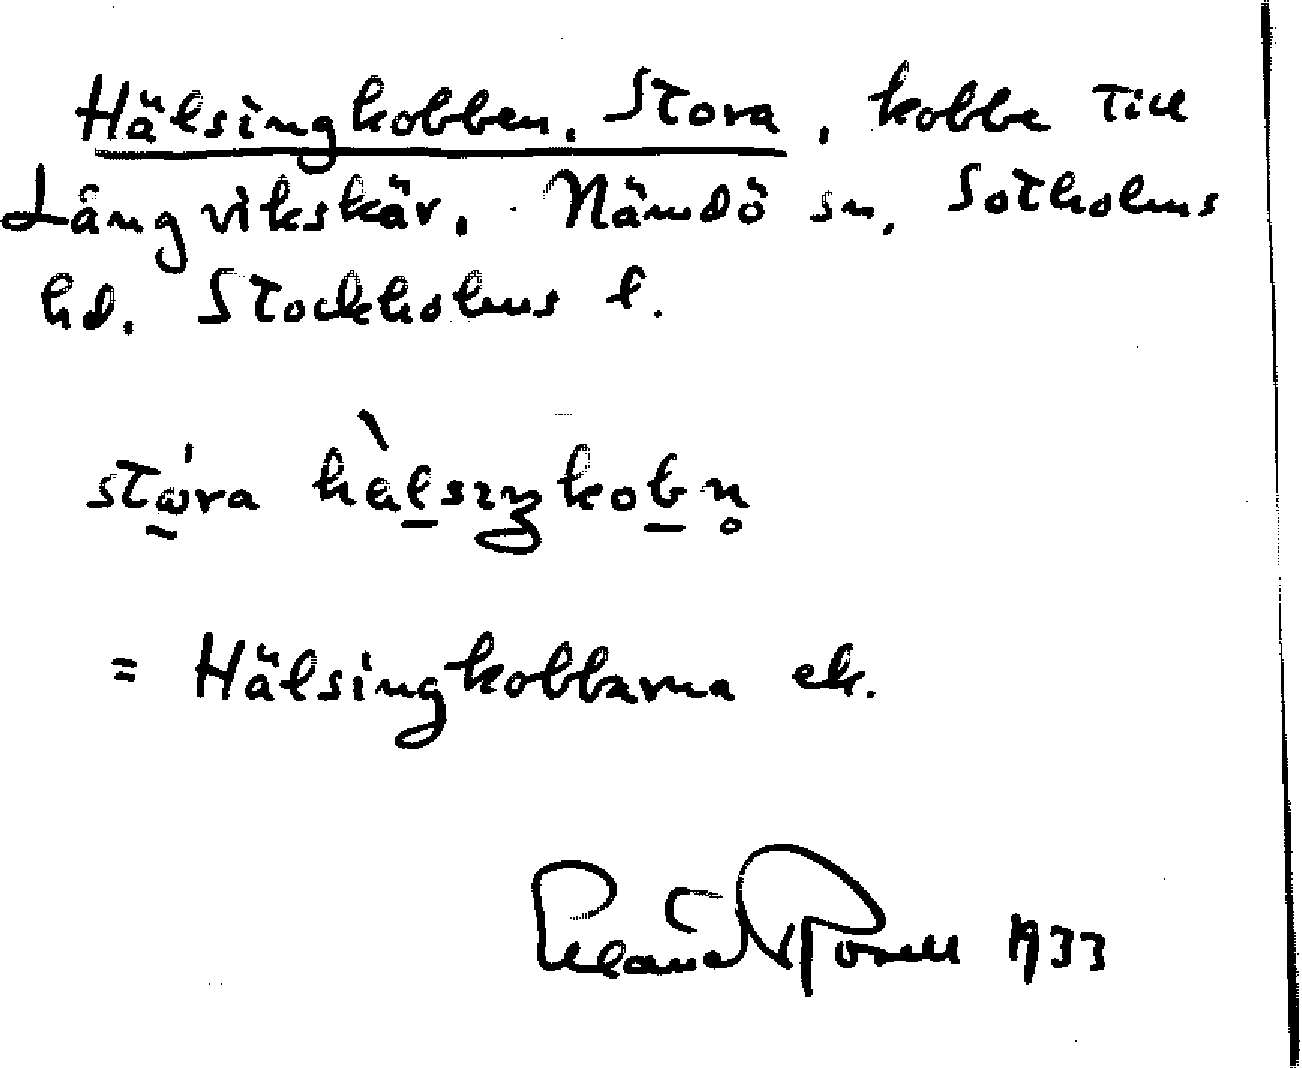 Hälsingkobben, Stora, kobbe till
Långvikskär. Nämdö sn, Sotholms
hd. Stockholms l.
stώ̱ra hàḻsıŋkoḇn̥
= Hälsingkobbarna ek.
Erland Rosell 1933